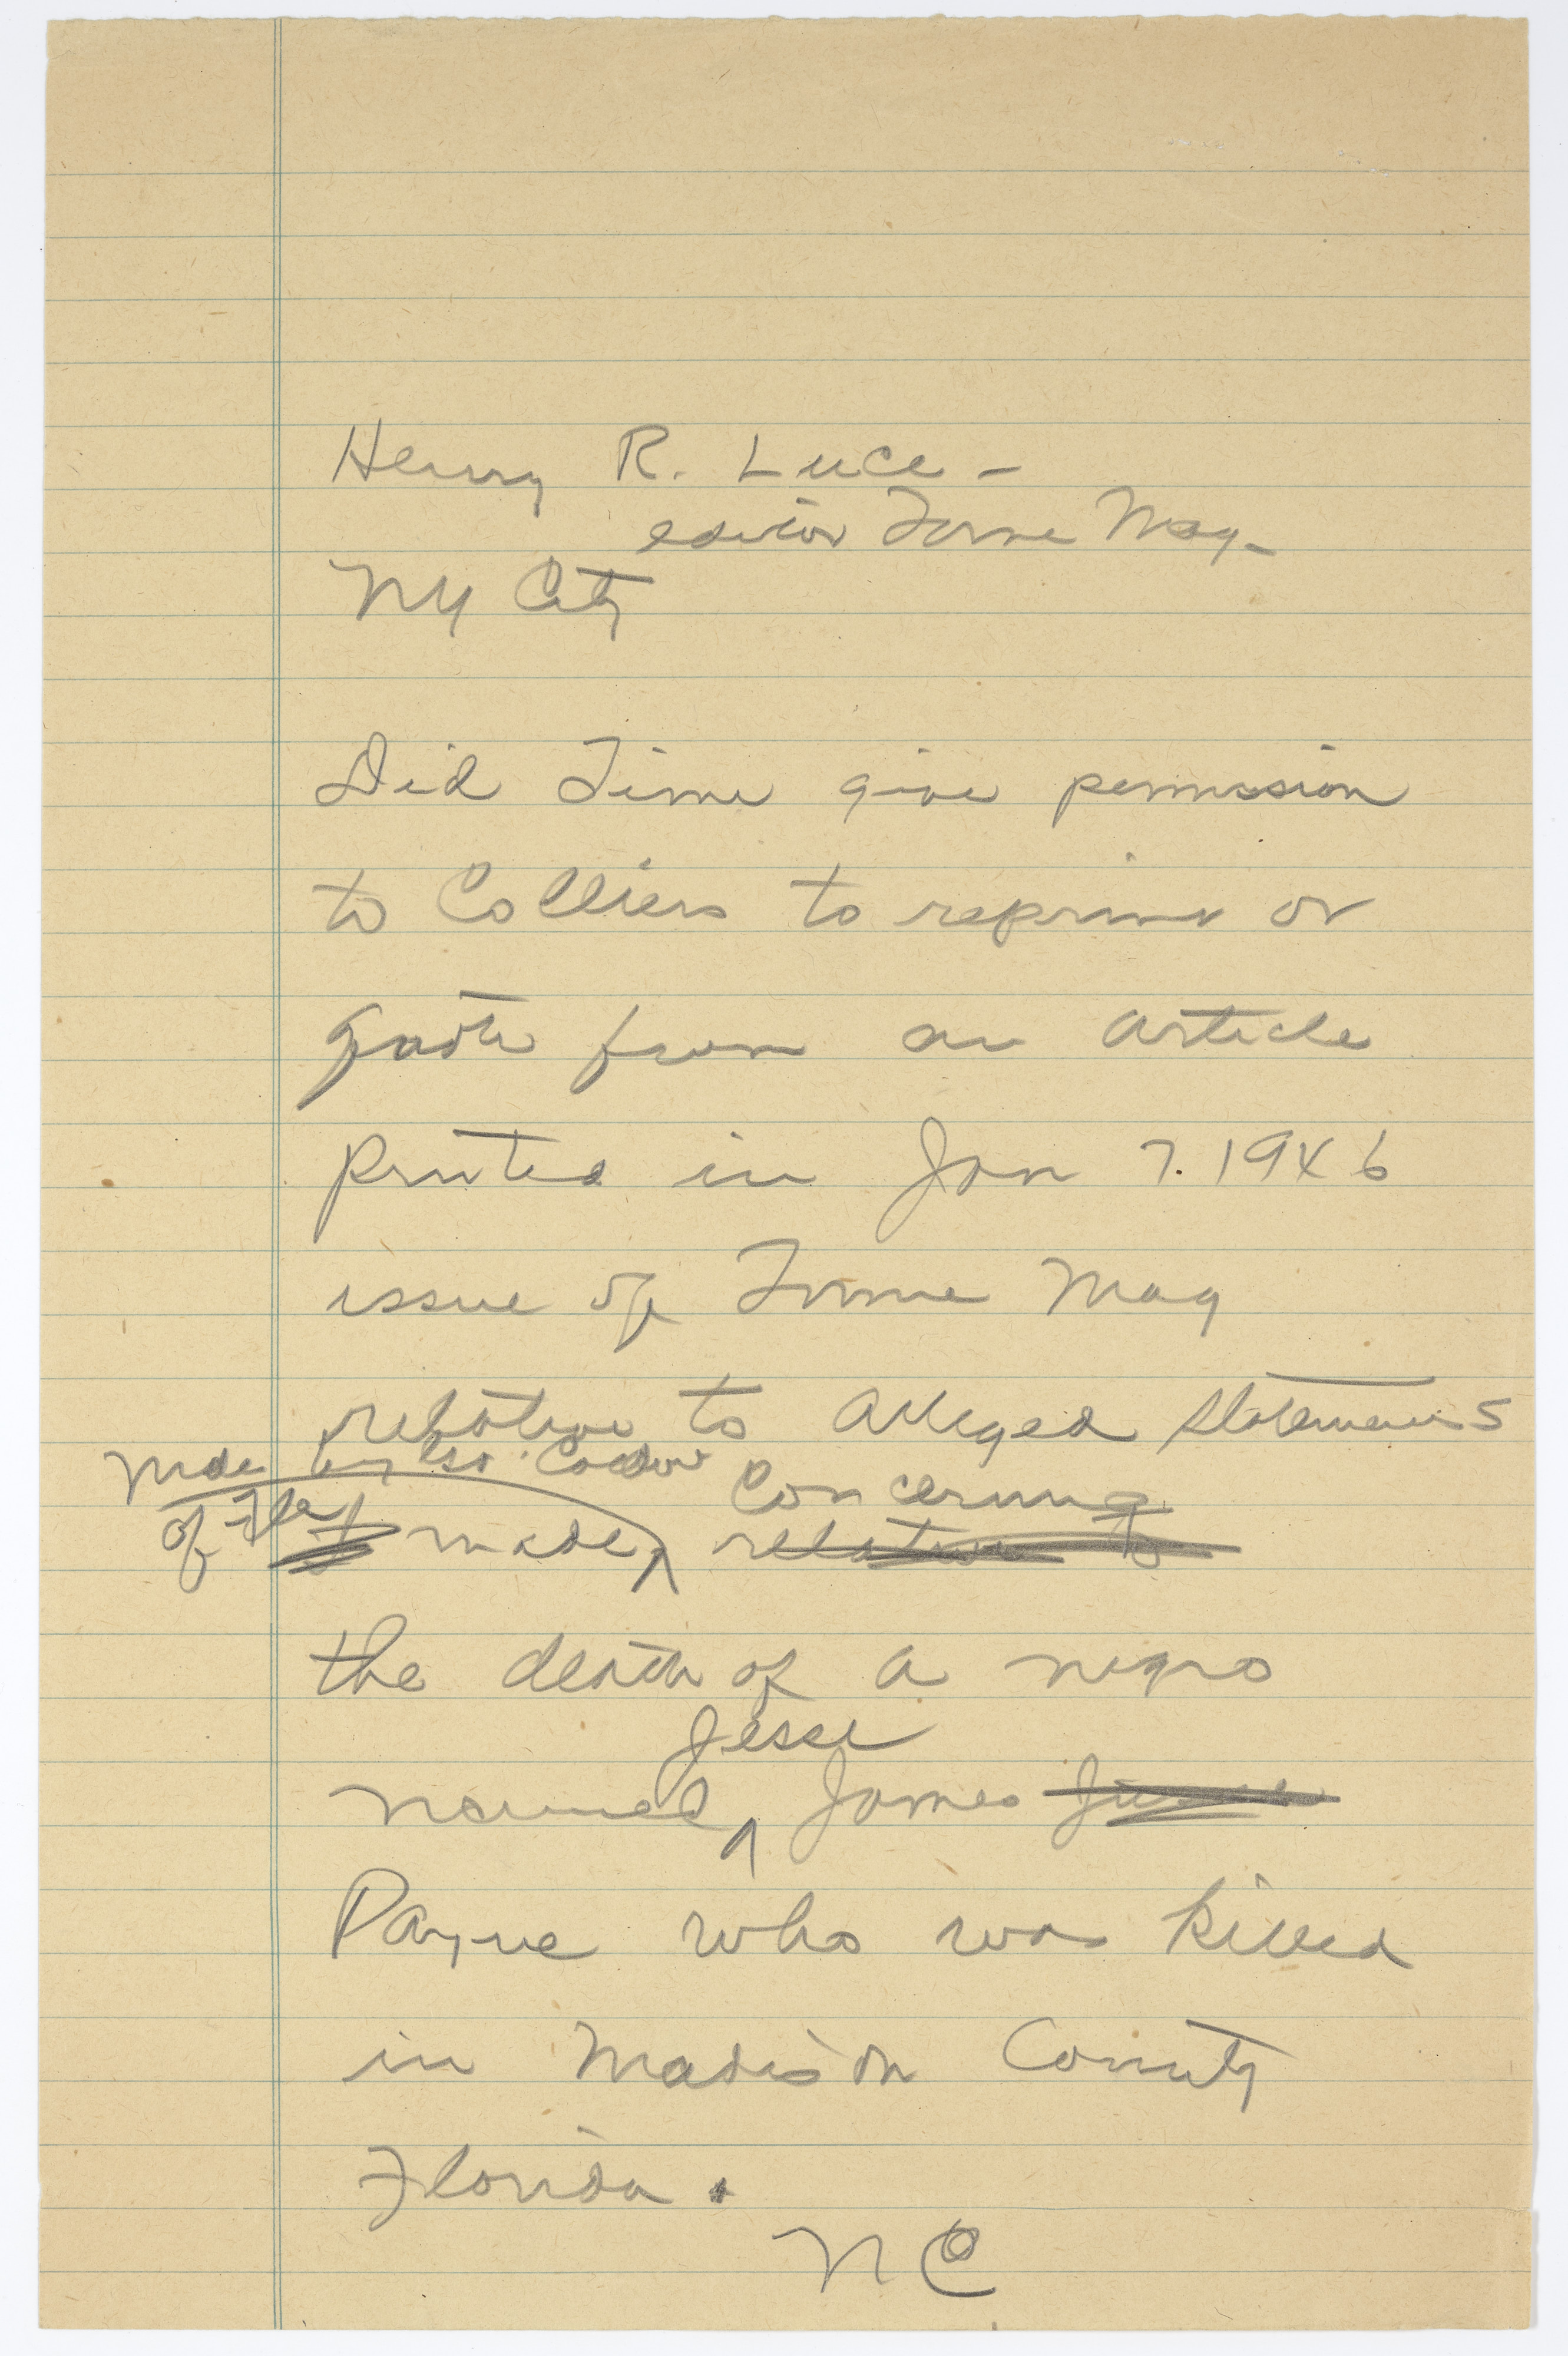 Henry R. Luce -
editor Time Mag -
NY City
Did Time give permission
to Colliers to reprint or
quote from an article
printed in Jan 7. 1946
issue of Time Mag
relative to alleged statements
made by Gov. Caldwell
of Fla
made concerning
relative to
the death of a negro
Jesse
named James
Payne who was killed
in Madison County
Florida.
NC